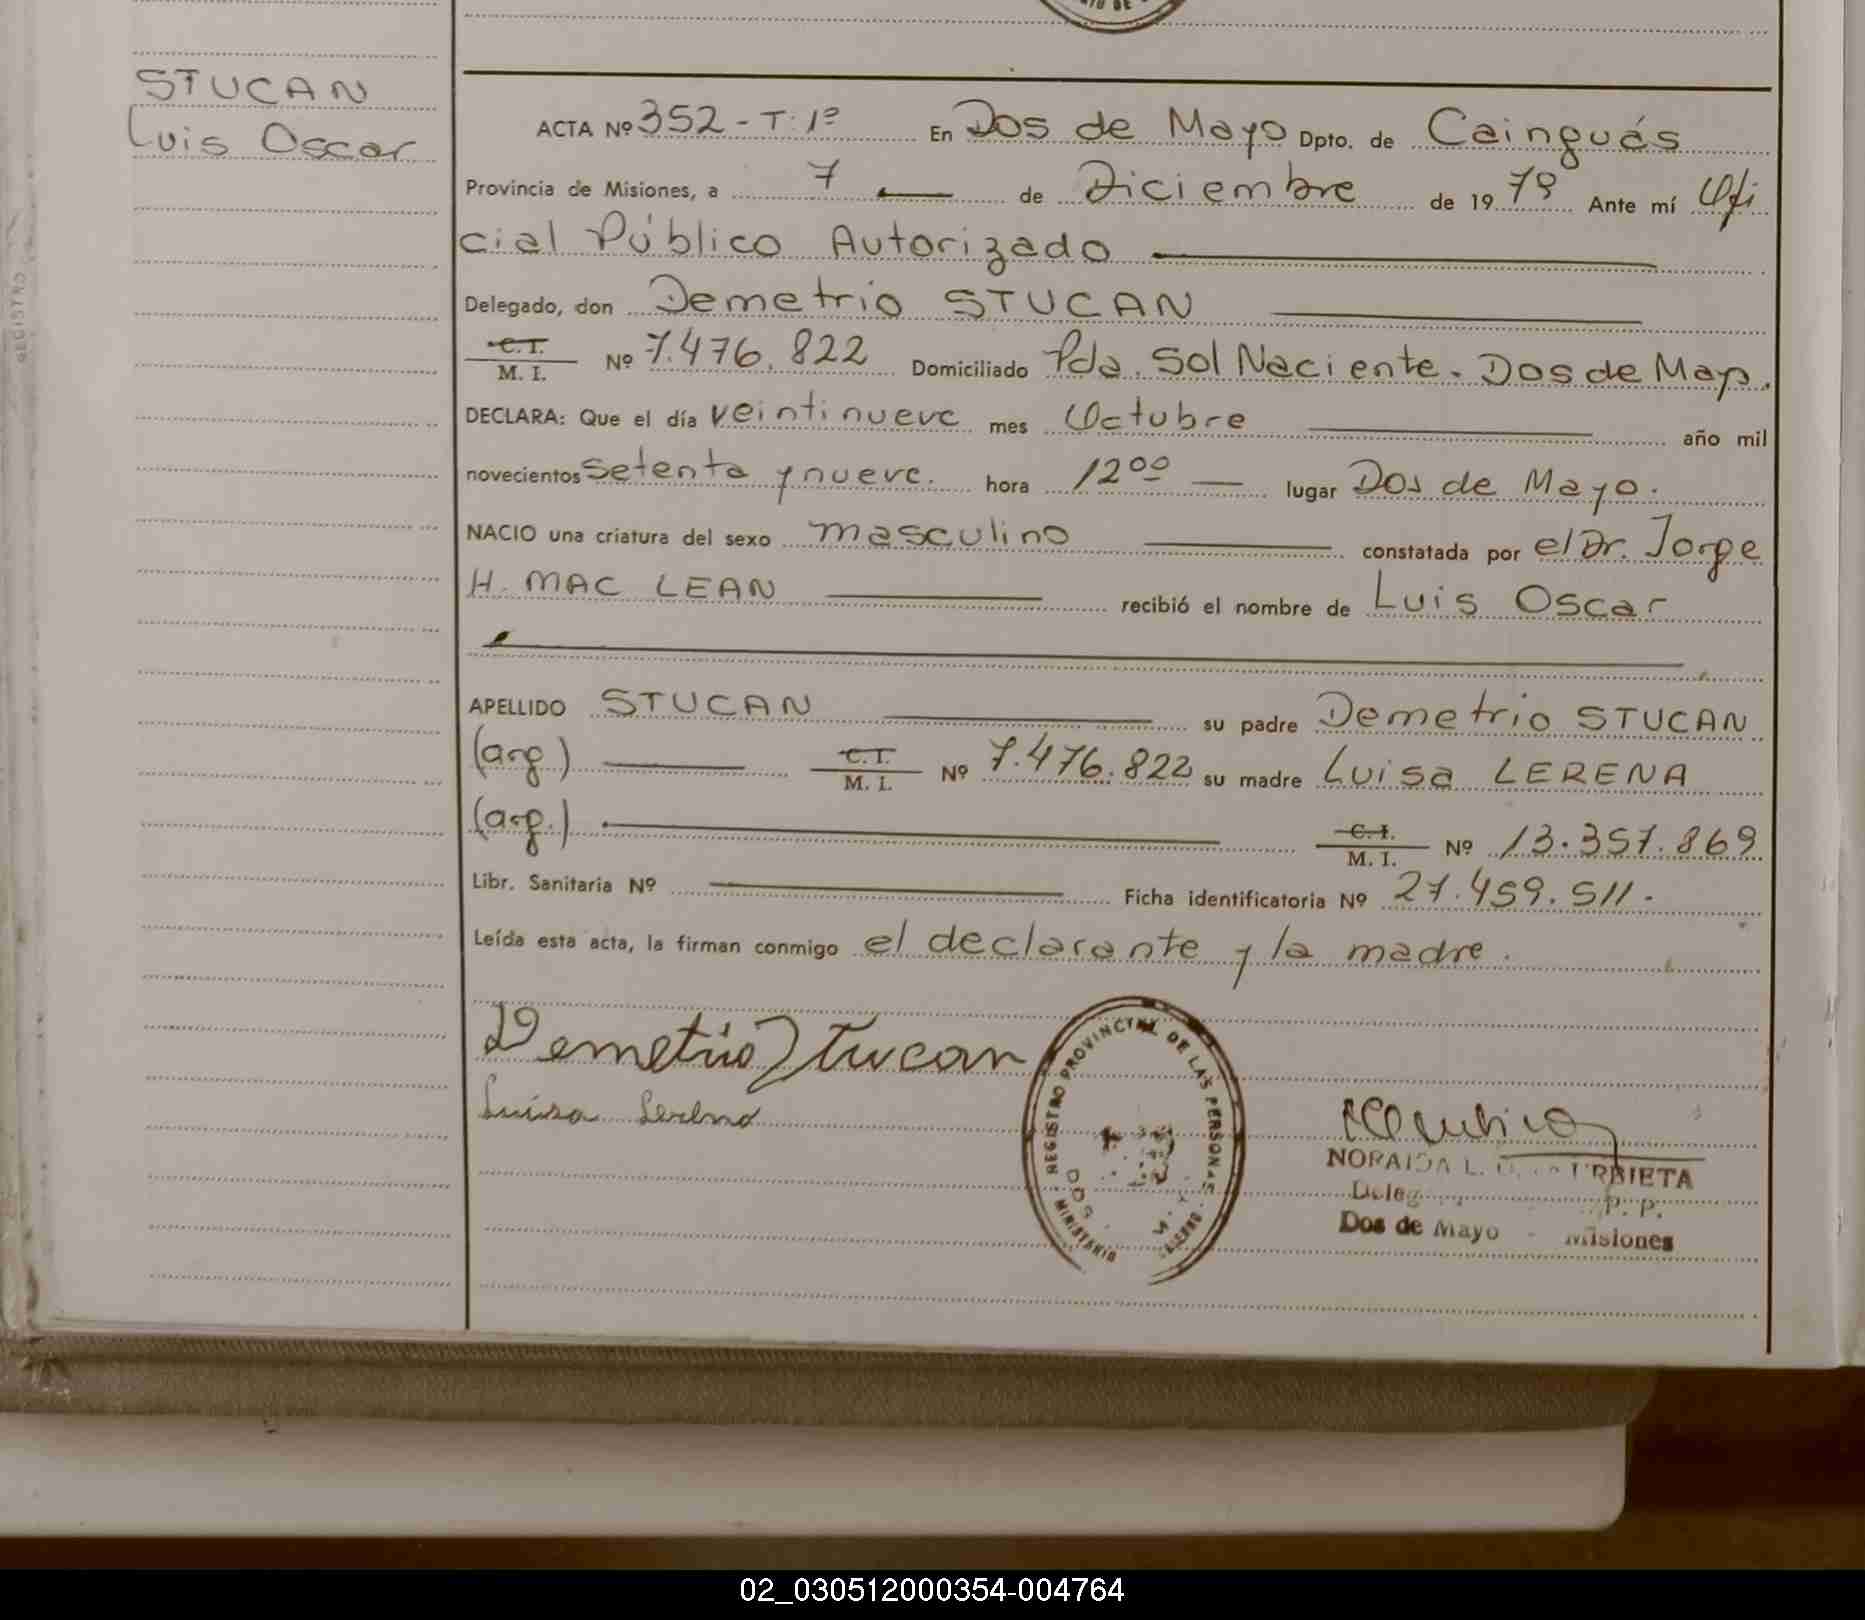 STUCAN
Luis Oscar
ACTA Nº 352 - T: 1º En Dos de Mayo Dpto. de Cainguás
Provincia de Misiones, a 7 de Diciembre de 1979 Ante mí Ofi
cial Público Autorizado
Delegado, don Demetrio STUCAN
C.I. M. I. Nº 7.476.822 Domiciliado Pda. Sol Naciente. Dos de Mayo.
DECLARA: Que el día veintinueve mes Octubre año mil
novecientos setenta y nueve. hora 12ºº lugar Dos de Mayo.
NACIO una criatura del sexo masculino constatada por el Dr. Jorge
H. MAC LEAN recibió el nombre de Luis Oscar
APELLIDO STUCAN su padre Demetrio STUCAN
(arg) C.I. M. I. Nº 7.476.822 su madre Luisa LERENA
(arg.) C.I. M. I. Nº 13.357.869
Libr. Sanitaria Nº Ficha identificatoria Nº 27.459.511.-
Leída esta acta, la firman conmigo el declarante y la madre.
Demetrio Stucan
Luisa Lerena
REGISTRO PROVINCIAL DE LAS PERSONAS
MINISTERIO
DOS
NORAIDA L. URBIETA
Deleg P. P.
Dos de Mayo - Misiones
02_030512000354-004764